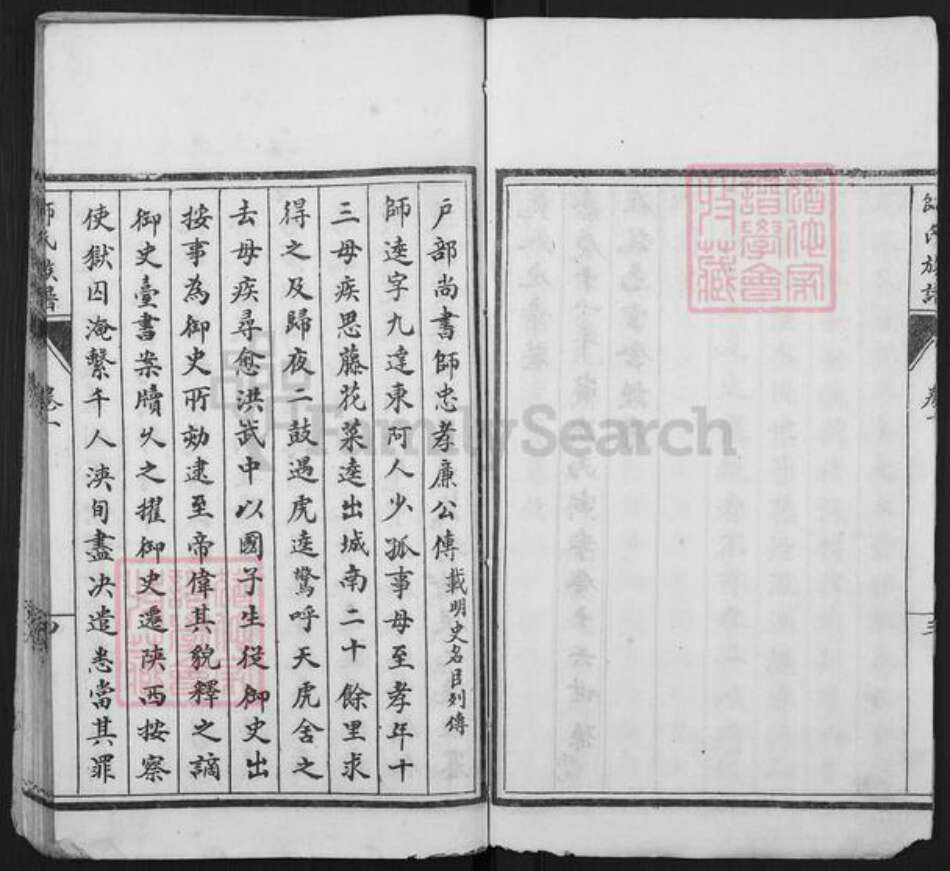 師氏族譜
卷一
三
戶部尚書師忠孝廉公傳 載明史名臣列傳
師逵字九逵東阿人少孤事母至孝年十
三母疾思藤花菜逵出城南二十餘里求
得之及歸夜二鼓遇虎逵驚呼天虎舍之
去母疾尋愈洪武中以國子生從御史出
按事為御史所劾逮至帝偉其貌釋之謫
御史臺書案牘久之擢御史遷陝西按察
使獄囚淹繫千人浹旬盡决遣悉當其罪
師氏族譜
卷一
四
FamilySearch